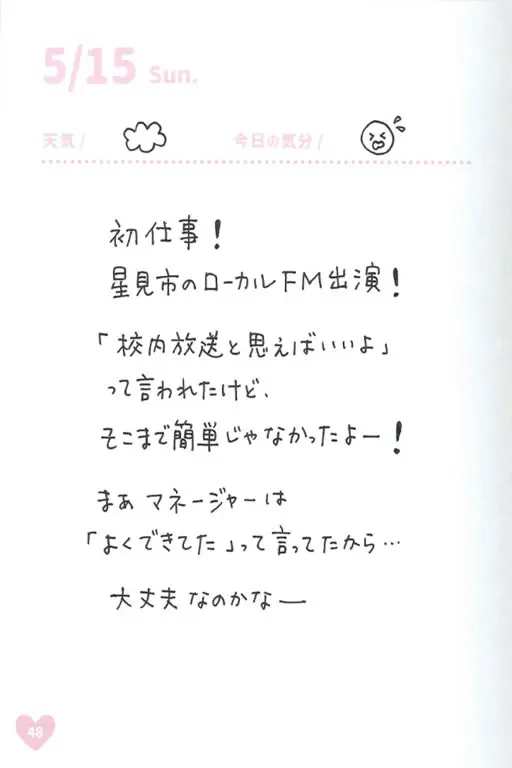 5/15 Sun.
天気/
今日の気分/
初仕事!
星見市のローカルFM出演!
「校内放送と思えばいいよ」
って言われたけど、
そこまで簡単じゃなかったよー!
まぁ マネージャーは
「よくできてた」って言ってたから…
大丈夫なのかなー
48